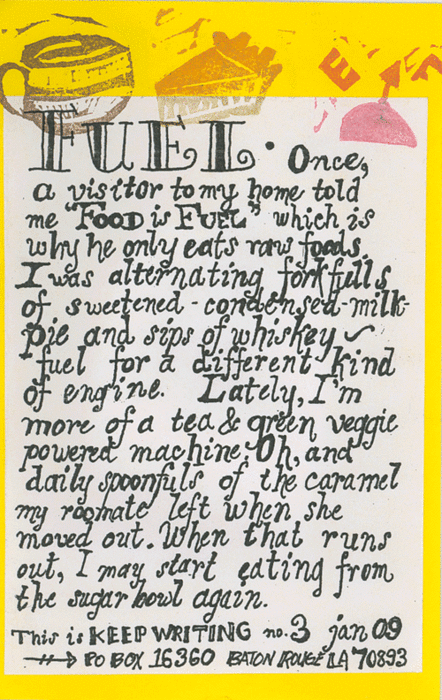 FUEL. Once,
a visitor to my home told
me "FOOD is FUEL" which is
why he only eats raw foods.
I was alternating forkfulls
of sweetened-condensed-milk-
pie and sips of whiskey ~
fuel for a different kind
of engine. Lately, I'm
more of a tea & green veggie
powered machine. Oh, and
daily spoonfuls of the caramel
my roomate left when she
moved out. When that runs
out, I may start eating from
the sugar bowl again.
This is KEEP WRITING no. 3 jan 09
PO BOX 16360 BATON ROUGE LA 70893